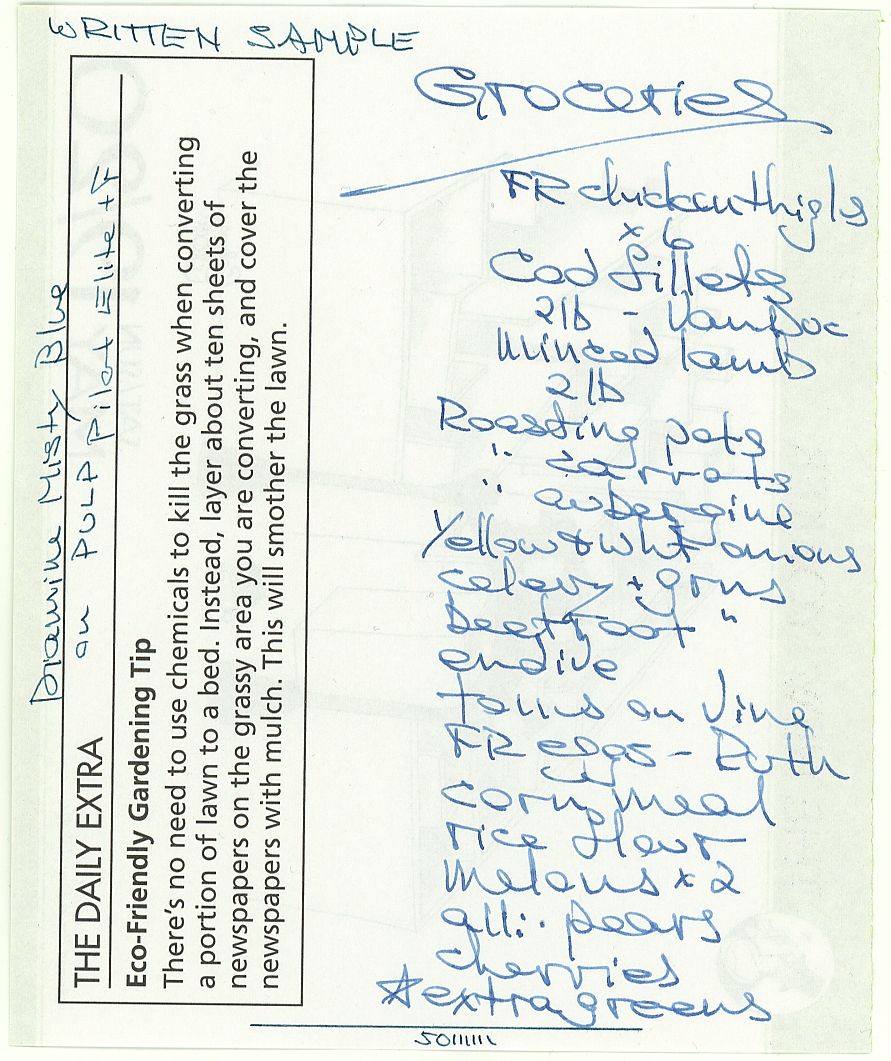 WRITTEN SAMPLE
Groceries
FR chicken thighs
x 6
Cod fillets
2lb - VanDoc
minced lamb
2lb
Roasting pots
" carrots
" aubergine
Yellow & wht onions
celery + grns
beetroot "
endive
toms on vine
FR eggs - Ruth
corn meal
rice flour
melons x 2
all: pears
cherries
*extra greens
Diamine Misty Blue
on PULP Pilot Elite + F
THE DAILY EXTRA
Eco-Friendly Gardening Tip
There's no need to use chemicals to kill the grass when converting
a portion of lawn to a bed. Instead, layer about ten sheets of
newspapers on the grassy area you are converting, and cover the
newspapers with mulch. This will smother the lawn.